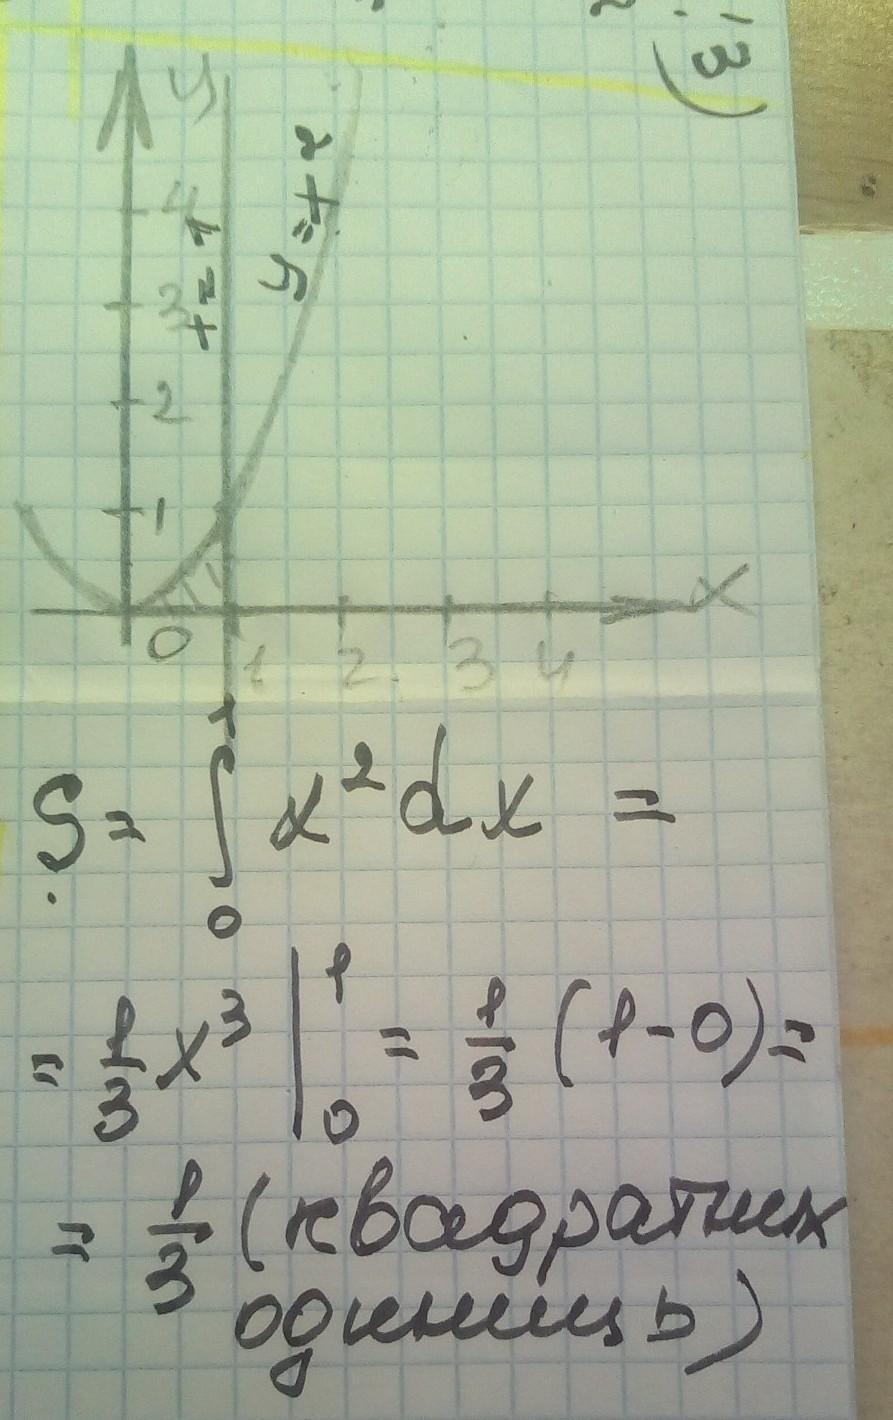 3)
y
4
3
2
1
x=1
y=x²
0 1 2 3 4 x
S = ∫₀¹ x² dx =
= 1/3 x³ |₀¹ = 1/3 (1-0) =
= 1/3 (квадратних
одиниць)